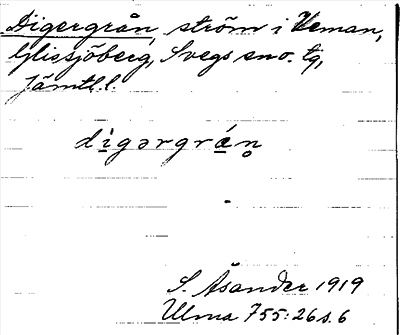 Digergrån, ström i Veman,
Glissjöberg, Svegs sn o. tg,
Jämtl. l.
digərgrán
S. Åsander 1919
Ulma 755:26 s. 6